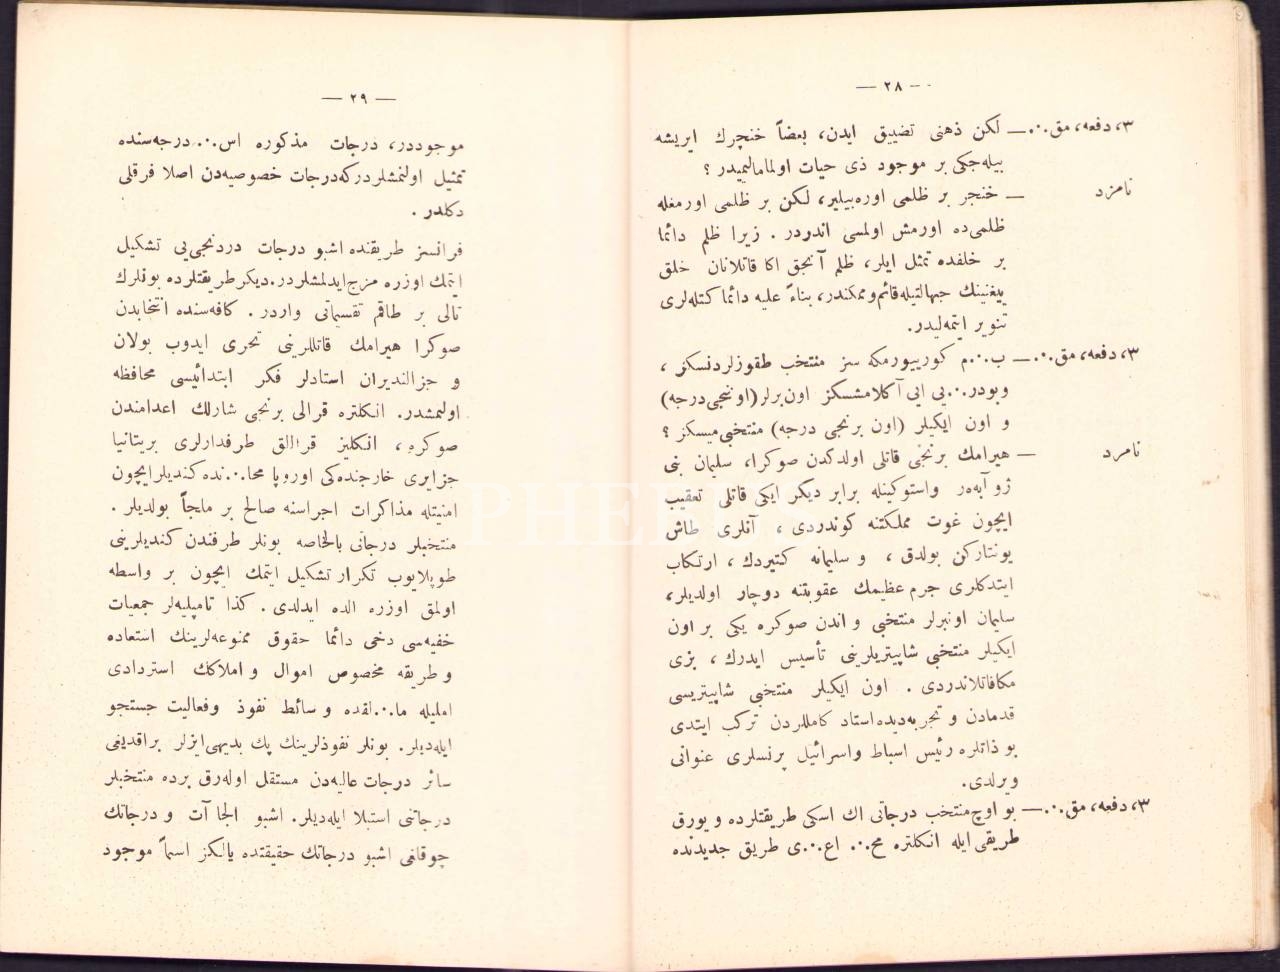 — ٢٨ —
٣، دفعه، مق.·. — لكن ذهنی تضییق ایدن، بعضاً خنچرك ایریشه
بیله‌جكی بر موجود ذی حیات اولمامالیمیدر ؟
نامزد — خنجر بر ظلمی اوره‌بیلیر، لكن بر ظلمی اورمغله
ظلمی‌ده اورمش اولمسی اندردر . زیرا ظلم دائما
بر خلفده تمثل ایلر، ظلم آنجق اكا قاتلانان خلق
ییغنینك جهالتیله قائم وممكندر، بناءً علیه دائما كتله‌لری
تنویر ایتمه‌لیدر.
٣، دفعه، مق.·. — ب.·.م كورییورمكه سز منتخب طقوزلردنسكز ،
وبودر.·.یی ایی آكلامشسكز اون‌برلر (اوننجی درجه)
و اون ایكیلر (اون برنجی درجه) منتخبی‌میسكز ؟
نامرد — هیرامك برنجی قاتلی اولدكدن صوكرا، سلیمان بنی
ژوآبه‌ر واستوكینله برابر دیكر ایكی قاتلی تعقیب
ایچون غوت مملكتنه كوندردی ، آنلری طاش
یونتاركن بولدق ، و سلیمانه كتیردك ، ارتكاب
ایتدكلری جرم عظیمك عقوبتنه دوچار اولدیلر،
سلیمان اونبرلر منتخبی و اندن صوكره یكی بر اون
ایكیلر منتخبی شاپیتریلرینی تأسیس ایدرك ، بزی
مكافاتلاندردی . اون ایكیلر منتخبی شاپیتریسی
قدمادن و تجربه‌دیده استاد كامللردن تركب ایتدی
بو ذاتلره رئیس اسباط واسرائیل پرنسلری عنوانی
ویرلدی.
٣، دفعه، مق.·. — بو اوچ منتخب درجاتی اك اسكی طریقتلرده و یورق
طریقی ایله انكلتره مح.·. اع.·.ی طریق جدیدنده
— ٢٩ —
موجوددر، درجات مذكوره اس.·. درجه‌سنده
تمثیل اولنمشلردركه درجات خصوصیه‌دن اصلا فرقلی
دكلدر .
فرانسز طریقنده اشبو درجات دردنجی‌یی تشكیل
ایتمك اوزره مزج ایدلمشلردر. دیكر طریقتلرده بونلرك
تالی بر طاقم تقسیماتی واردر . كافه‌سنده انتخابدن
صوكرا هیرامك قاتللرینی تحری ایدوب بولان
و جزالندیران استادلر فكر ابتدائیسی محافظه
اولنمشدر. انكلتره قرالی برنجی شارلك اعدامندن
صوكره ، انكلیز قراللق طرفدارلری بریتانیا
جزایری خارجنده‌كی اوروپا محا.·.نده كندیلر ایچون
امنیتله مذاكرات اجراسنه صالح بر ملجأ بولدیلر .
منتخبلر درجاتی بالخاصه بونلر طرفندن كندیلرینی
طوپلایوب تكرار تشكیل ایتمك ایچون بر واسطه
اولمق اوزره الده ایدلدی . كذا تامپلیه‌لر جمعیات
خفیه‌سی دخی دائما حقوق ممنوعه‌لرینك استعاده
و طریقه مخصوص اموال و املاكك استردادی
املیله ما.·.لقده و سائط نفوذ وفعالیت جستجو
ایله‌دیلر. بونلر نفوذلرینك پك بدیهی ایزلر براقدیغی
سائر درجات عالیه‌دن مستقل اوله‌رق برده منتخبلر
درجاتنی استیلا ایله‌دیلر. اشبو الجاآت و درجاتك
چوقلغی اشبو درجاتك حقیقتده یالكز اسماً موجود
PHEBUS